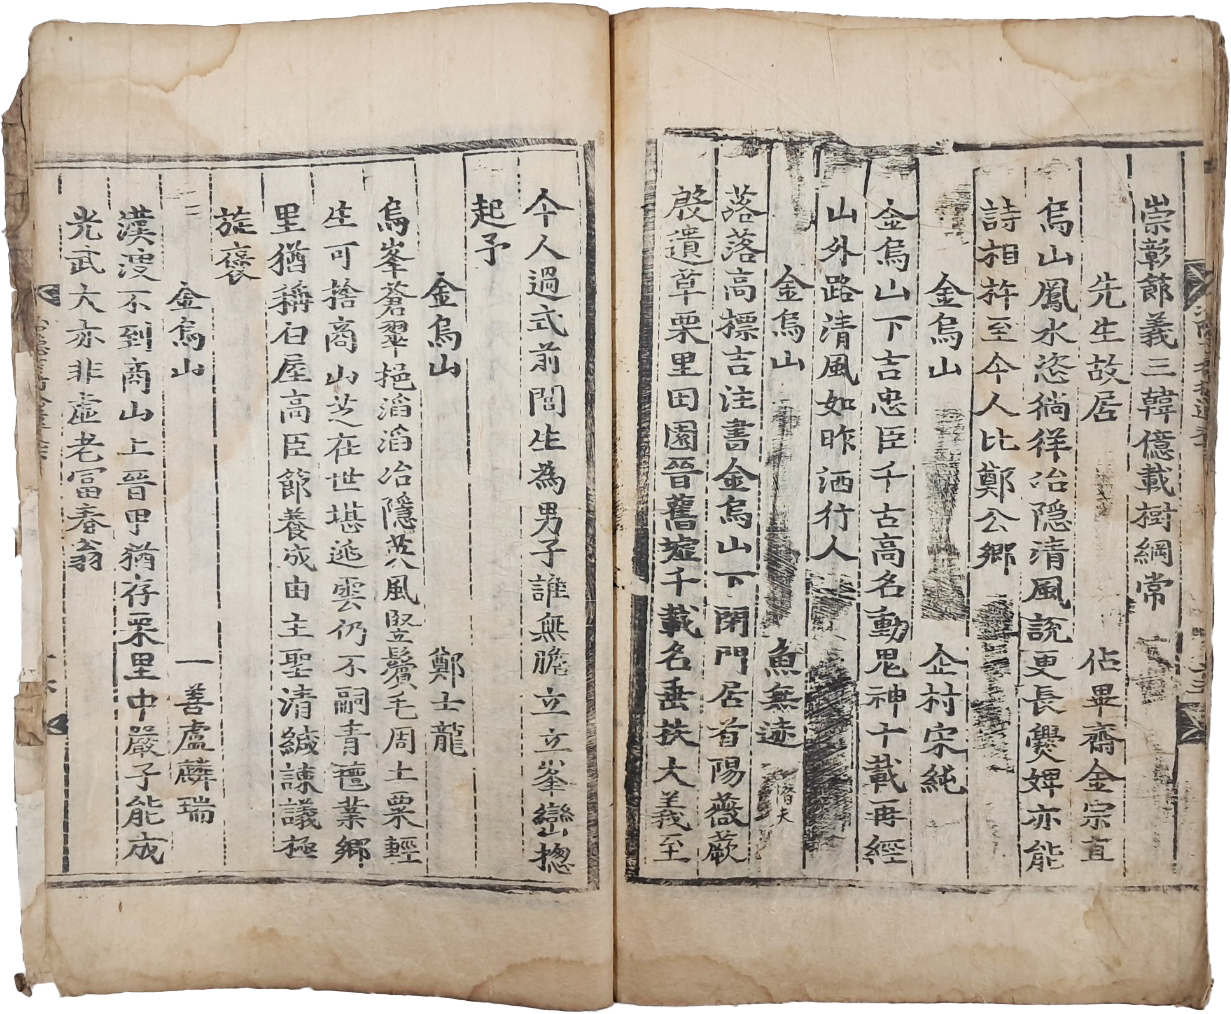 崇彰節義三韓億載樹綱常
先生故居 佔畢齋金宗直
烏山鳳水恣徜徉冶隱清風說更長爨婢亦能
詩相杵至今人比鄭公鄉
金烏山 企村宋純
金烏山下吉忠臣千古高名動鬼神十載再經
山外路清風如昨洒行人
金烏山 魚無迹 潛夫
落落高標吉注書金烏山下閉門居首陽薇蕨
殷遺草栗里田園晉舊墟千載名垂扶大義至
今人過式前閭生為男子誰無膽立立峯巒揔
起予
金烏山 鄭士龍
烏峯蒼翠挹滔滔冶隱英風竪鬢毛周土粟輕
生可捨商山芝在世堪逃雲仍不嗣青氊業鄉
里猶稱白屋高臣節養成由主聖清緘諫議極
旌褒
金烏山 一善盧麟瑞
漢溲不到商山上晉甲猶存栗里中嚴子能成
光武大亦非虛老富春翁